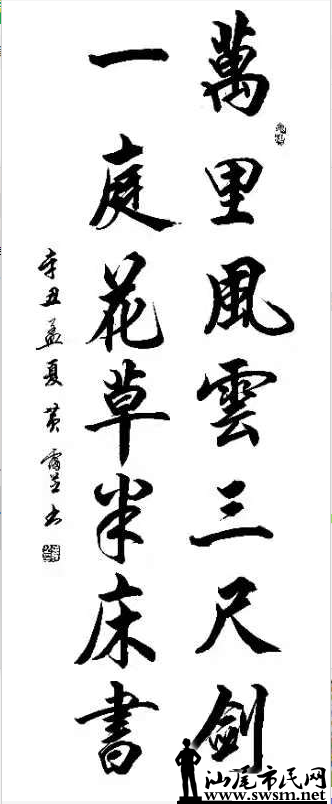 萬里風雲三尺劍
一庭花草半床書
辛丑孟夏黃霭芝书
汕尾市民网
www.swsm.net